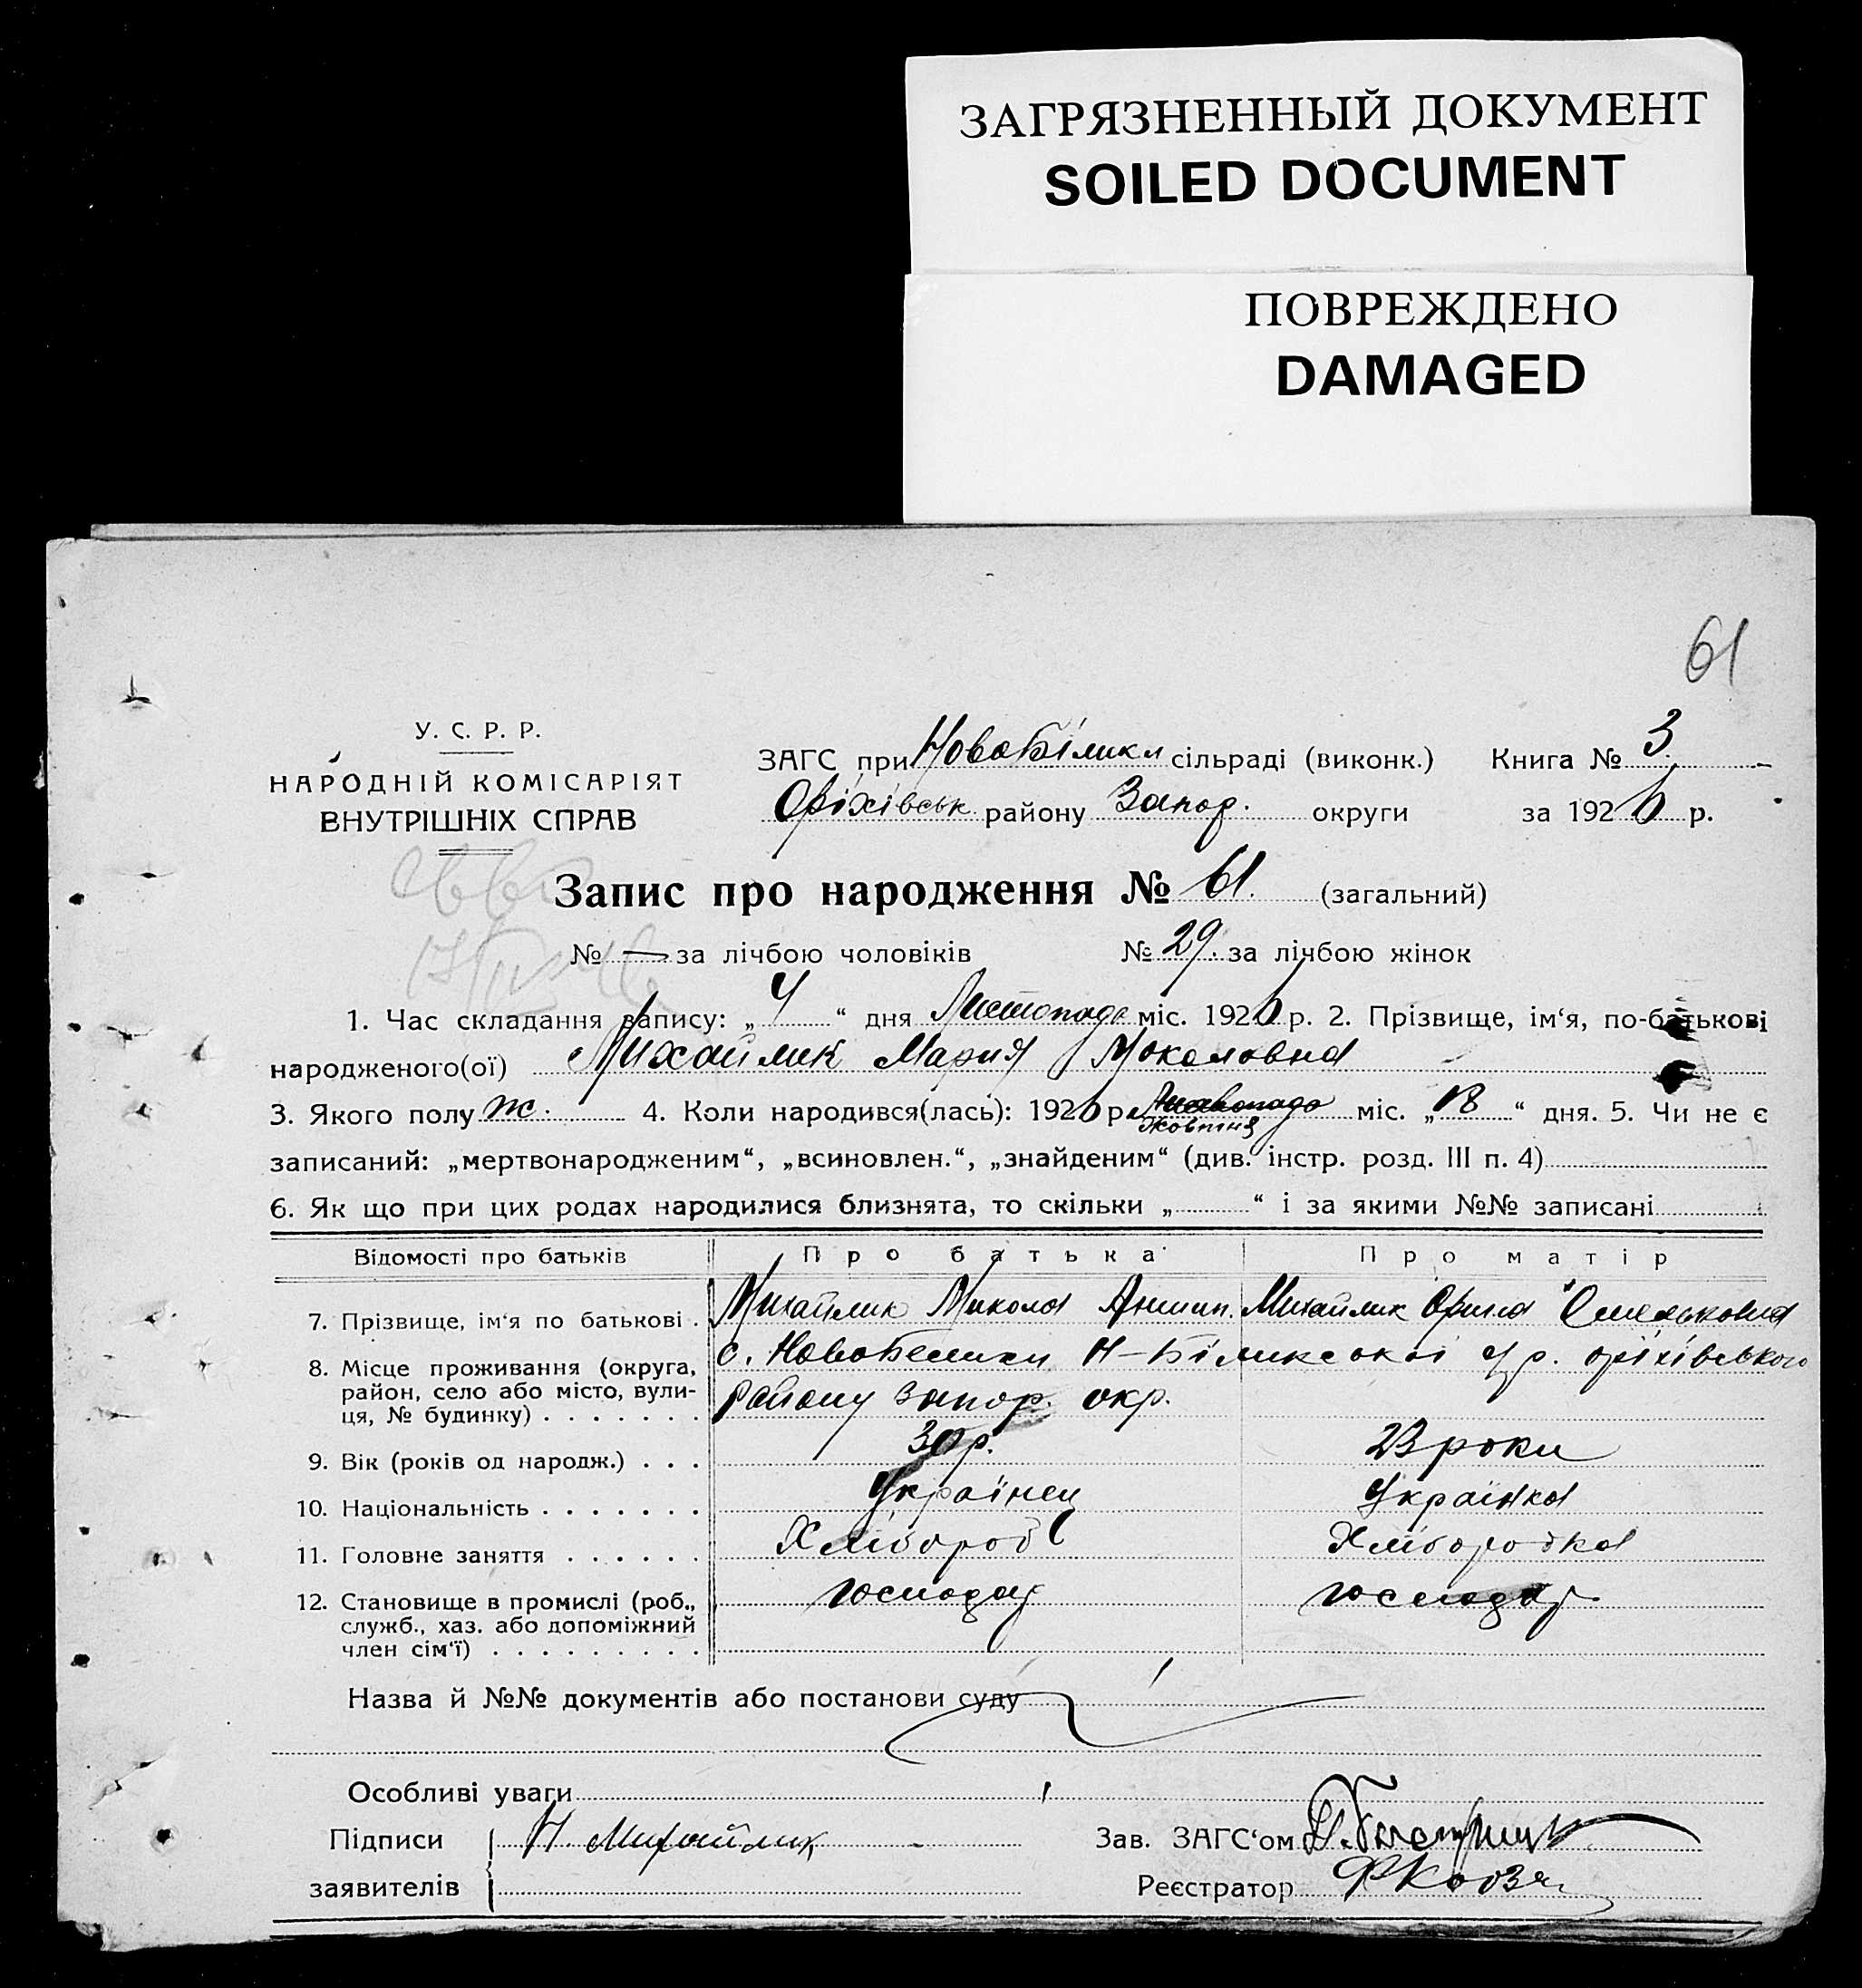 ЗАГРЯЗНЕННЫЙ ДОКУМЕНТ
SOILED DOCUMENT
ПОВРЕЖДЕНО
DAMAGED
61
У. С. Р. Р.
НАРОДНІЙ КОМІСАРІЯТ
ВНУТРІШНІХ СПРАВ
ЗАГС при НовоБілики сільраді (виконк.) Книга № 3
Оріхівськ. району Запор. округи за 1926 р.
Запис про народження № 61. (загальний)
№ — за лічбою чоловіків № 29. за лічбою жінок
1. Час складання запису: „ 4 “ дня Листопада міс. 1926 р. 2. Прізвище, ім‘я, по-батькові
народженого(ої) Михайлик Мария Миколовна
3. Якого полу ж. 4. Коли народився(лась): 1926 р. Листопада міс. „ 18 “ дня. 5. Чи не є
жовтня
записаний: „мертвонародженим“, „всиновлен.“, „знайденим“ (див. інстр. розд. III п. 4)
6. Як що при цих родах народилися близнята, то скільки „ “ і за якими №№ записані
Відомості про батьків Про батька Про матір
7. Прізвище, ім‘я по батькові . Михайлик Микола Антип. Михайлик Орина Омельковна
8. Місце проживання (округа, с. НовоБелики Н-Біликської с/р. оріхівського
район, село або місто, вули-
ця, № будинку) . . . . . . . району запор. окр.
9. Вік (років од народж.) . . . 30 р. 23 роки
10. Національність . . . . . . . Українец Українка
11. Головне заняття . . . . . . Хлібороб Хліборобка
12. Становище в промислі (роб., господар господар
служб., хаз. або допоміжний
член сім‘ї) . . . . . . . . .
Назва й №№ документів або постанови суду
Особливі уваги
Підписи Н. Михайлик Зав. ЗАГС‘ом
заявителів Реєстратор